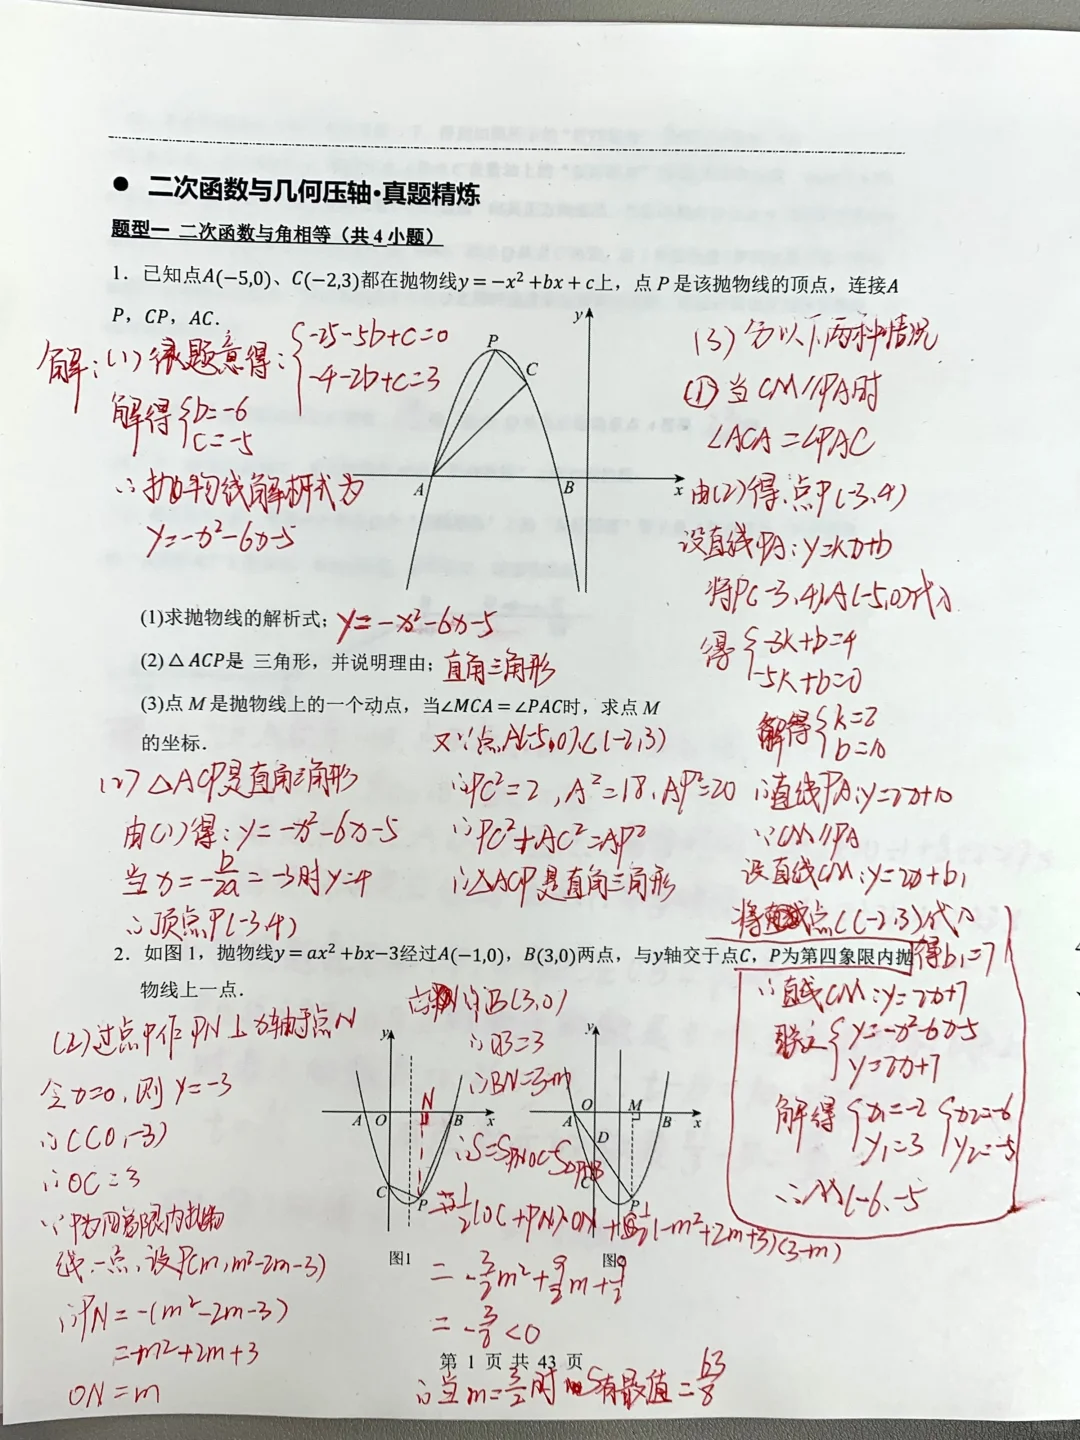 ● 二次函数与几何压轴·真题精炼
题型一 二次函数与角相等（共 4 小题）
1．已知点A(−5,0)、C(−2,3)都在抛物线y＝−x²＋bx＋c上，点 P 是该抛物线的顶点，连接A
P，CP，AC．
解：(1) 依题意得：{-25-5b+c=0
-4-2b+c=3
解得{b=-6
c=-5
∴ 抛物线解析式为
y=-x²-6x-5
y
P
C
A
B
x
(1)求抛物线的解析式；y=-x²-6x-5
(2) △ACP是 三角形，并说明理由；直角三角形
(3)点 M 是抛物线上的一个动点，当∠MCA＝∠PAC时，求点 M
的坐标．
(2) △ACP是直角三角形
由(1)得：y=-x²-6x-5
当x=-b/2a=-3时y=4
∴顶点P(-3,4)
又∵点A(-5,0),C(-2,3)
∴PC²=2,A²=18,AP²=20
∴PC²+AC²=AP²
∴△ACP是直角三角形
(3) 分以下两种情况
①当CM//PA时
∠ACA=∠PAC
由(2)得,点P(-3,4)
设直线PA:y=kx+b
将P(-3,4),A(-5,0)代入
得{-3k+b=4
-5k+b=0
解得{k=2
b=10
∴直线PA:y=2x+10
∵CM//PA
设直线CM:y=2x+b₁
将点C(-2,3)代入
得b₁=7
∴直线CM:y=2x+7
联立{y=-x²-6x-5
y=2x+7
解得{x₁=-2
y₁=3
{x₂=-6
y₂=-5
∴M(-6,-5
2．如图 1，抛物线y＝ax²＋bx−3经过A(−1,0)，B(3,0)两点，与y轴交于点C，P为第四象限内抛
物线上一点．
(2)过点P作PN⊥x轴于点N
令x=0,则y=-3
∴C(0,-3)
∴OC=3
∵P为四象限内抛物
线一点,设P(m,m²-2m-3)
∴PN=-(m²-2m-3)
=-m²+2m+3
ON=m
y
N
A
O
B
x
C
P
图1
B(3,0)
∴OB=3
∴BN=3-m
y
O
M
A
B
x
D
C
P
图2
½(OC+PN)·ON+½(-m²+2m+3)(3-m)
=-3/2m²+9/2m+9/2
=-3/2<0
∴当m=3/2时 S有最值=63/8
第 1 页 共 43 页